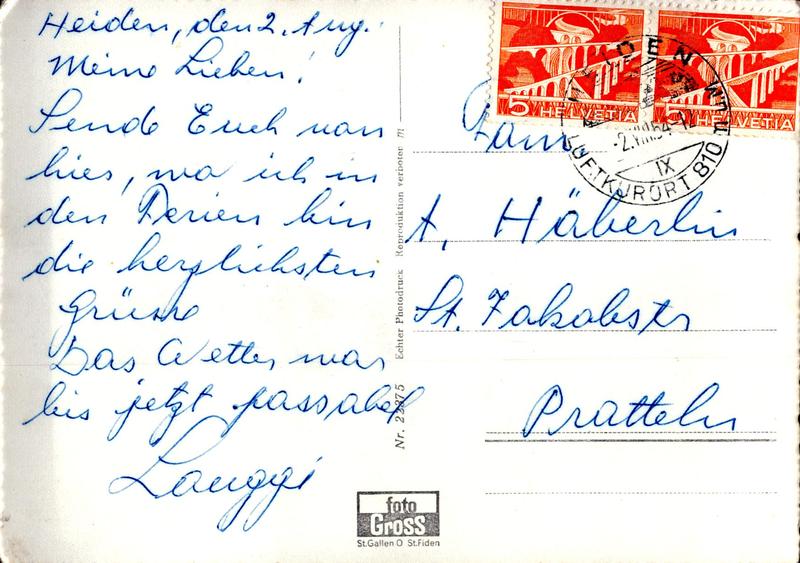 Heiden, den 2. Aug.
Meine Lieben!
Sende Euch von
hier, wo ich in
den Ferien bin
die herzlichsten
Grüsse
Das Wetter war
bis jetzt passabel
5 HELVETIA
5 HELVETIA
HEIDEN
-2.VIII.54-12
IX
LUFTKURORT 810
Fam.
A. Häberlin
St. Jakobstr
Pratteln
Nr. 23375 Echter Photodruck Reproduktion verboten
foto
Gross
St.Gallen O St.Fiden